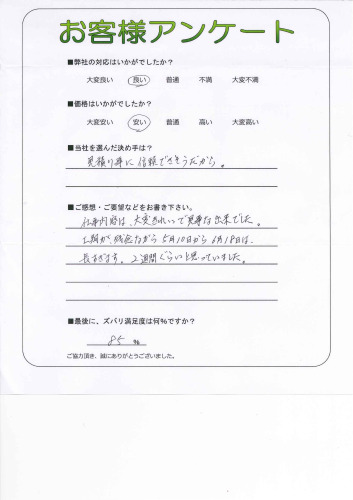 お客様アンケート
■弊社の対応はいかがでしたか？
大変良い　良い　普通　不満　大変不満
■価格はいかがでしたか？
大変安い　安い　普通　高い　大変高い
■当社を選んだ決め手は？
見積り事に信頼できそうだから。
■ご感想・ご要望などをお書き下さい。
仕事内容は、大変きれいで見事な出来でした。
工期が残念ながら5月10日から6月18日は、
長すぎます。2週間ぐらいと思っていました。
■最後に、ズバリ満足度は何％ですか？
85　％
ご協力頂き、誠にありがとうございました。